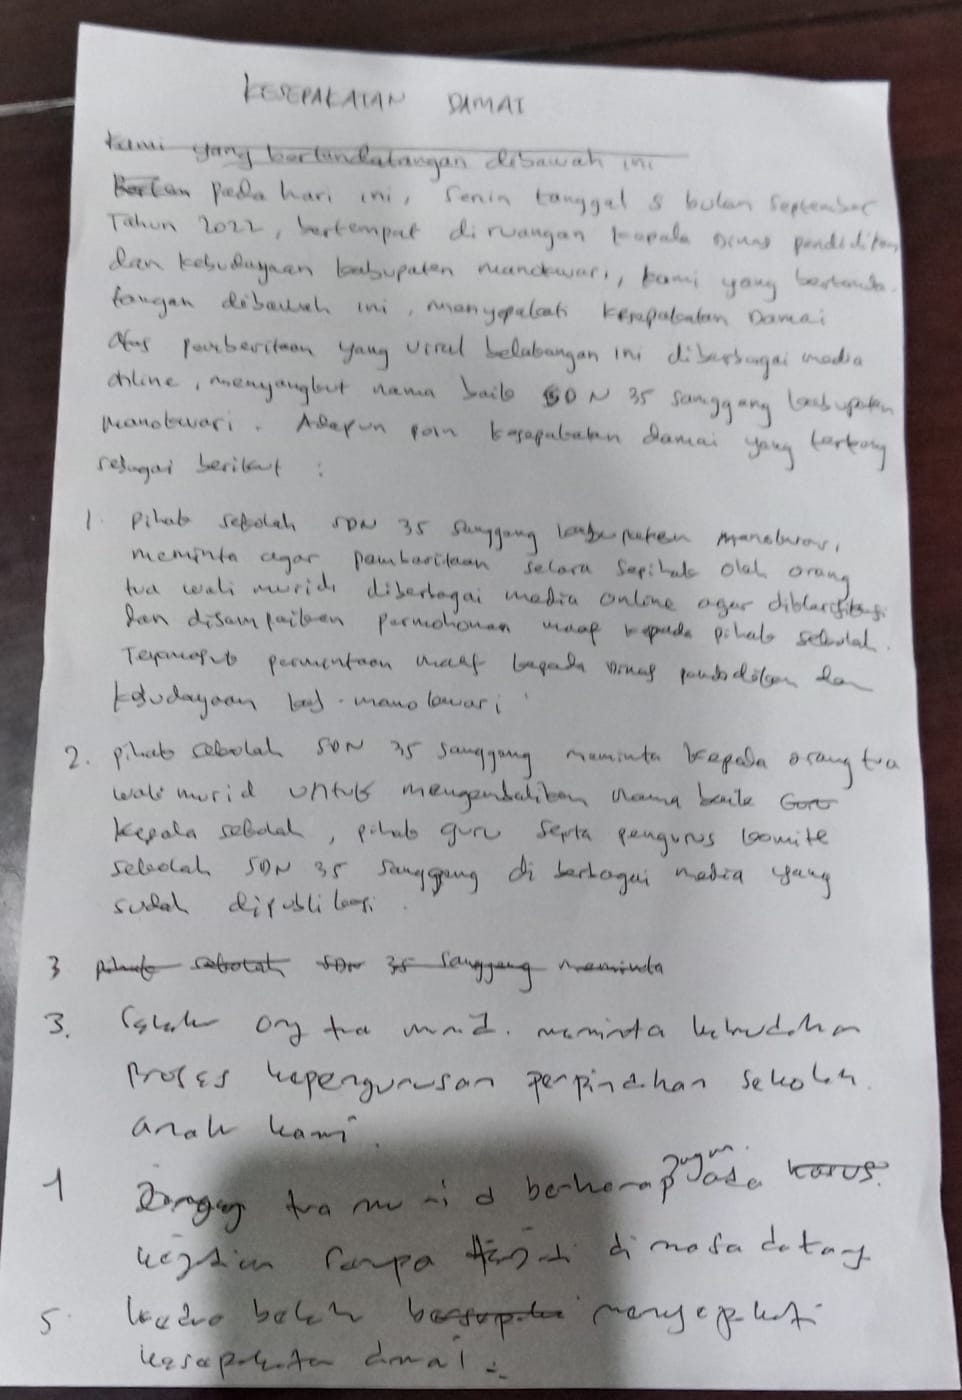 KESEPAKATAN DAMAI
Kami yang bertandatangan dibawah ini
Pada hari ini, Senin tanggal 5 bulan September
Tahun 2022, bertempat di ruangan Kepala Dinas pendidikan
dan kebudayaan kabupaten manokwari, kami yang bertanda
tangan dibawah ini, menyepakati Kesepakatan Damai
atas pemberitaan yang viral belakangan ini diberbagai media
online, menyangkut nama baik SDN 35 sanggang kabupaten
manokwari. Adapun poin kesepakatan damai yang
sebagai berikut :
1. Pihak sekolah SDN 35 Sanggang kabupaten manokwari,
meminta agar pemberitaan secara sepihak oleh orang
tua wali murid diberbagai media online agar diklarifikasi
dan disampaikan permohonan maaf kepada pihak sekolah.
Termasuk permintaan maaf kepada Dinas pendidikan dan
kebudayaan kab. manokwari
2. pihak sekolah SDN 35 sanggang meminta kepada orang tua
wali murid untuk mengembalikan nama baik Guru
Kepala sekolah, pihak guru serta pengurus komite
sekolah SDN 35 sanggang di berbagai media yang
sudah dipublikasi.
3 pihak sekolah SDN 35 sanggang meminta
3. org tua murid. meminta kemudahan
Proses kepengurusan perpindahan sekolah
anak kami.
tua murid berharap jangan ada kasus
kejadian serupa di masa datang
5. kedua belah menyepakati
kesepakatan damai.